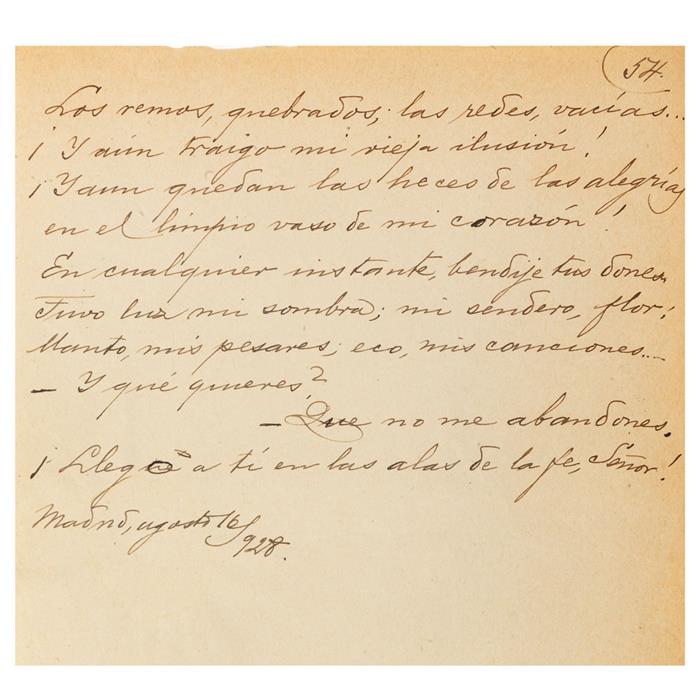 54.
Los remos, quebrados; las redes, vacías...
¡Y aún traigo mi vieja ilusión!
¡Y aun quedan las heces de las alegrías
en el limpio vaso de mi corazón!
En cualquier instante, bendije tus dones.
Tuvo luz mi sombra; mi sendero, flor;
Manto, mis pesares; eco, mis canciones...
– Y qué quieres?
– Que no me abandones.
¡Llegué a tí en las alas de la fe, Señor!
Madrid, agosto 16/928.